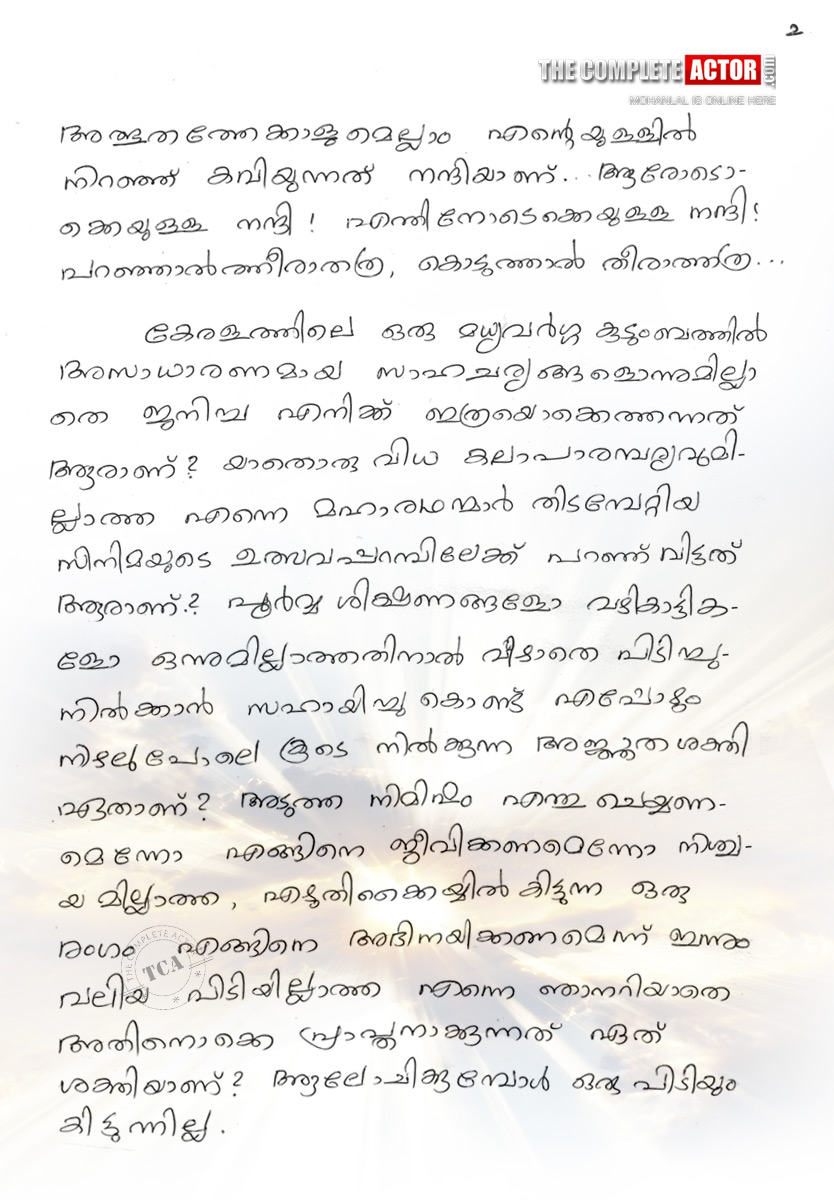 2
THE COMPLETE ACTOR .com
MOHANLAL IS ONLINE HERE
അത്ഭുതത്തേക്കാളുമെല്ലാം എന്റെയുള്ളിൽ
നിറഞ്ഞ് കവിയുന്നത് നന്ദിയാണ്... ആരോടൊ-
ക്കെയുള്ള നന്ദി! എന്തിനോടെക്കെയുള്ള നന്ദി!
പറഞ്ഞാൽത്തീരാതത്ര, കൊടുത്താൽ തീരാത്തത്ര...
കേരളത്തിലെ ഒരു മധ്യവർഗ്ഗ കുടുംബത്തിൽ
അസാധാരണമായ സാഹചര്യങ്ങളൊന്നുമില്ലാ
തെ ജനിച്ച എനിക്ക് ഇത്രയൊക്കെത്തന്നത്
ആരാണ്? യാതൊരു വിധ കലാപാരമ്പര്യവുമി-
ല്ലാത്ത എന്നെ മഹാരഥന്മാർ തിടമ്പേറ്റിയ
സിനിമയുടെ ഉത്സവപ്പറമ്പിലേക്ക് പറഞ്ഞ് വിട്ടത്
ആരാണ്? പൂർവ്വ ശിക്ഷണങ്ങളോ വഴികാട്ടിക-
ളോ ഒന്നുമില്ലാത്തതിനാൽ വീഴാതെ പിടിച്ചു-
നിൽക്കാൻ സഹായിച്ചു കൊണ്ട് എപ്പോഴും
നിഴലുപോലെ കൂടെ നിൽക്കുന്ന അജ്ഞാത ശക്തി
ഏതാണ്? അടുത്ത നിമിഷം എന്തു ചെയ്യണ-
മെന്നോ എങ്ങിനെ ജീവിക്കണമെന്നോ നിശ്ച-
യമില്ലാത്ത, എഴുതിക്കൈയ്യിൽ കിട്ടുന്ന ഒരു
രംഗം എങ്ങിനെ അഭിനയിക്കണമെന്ന് ഇന്നും
വലിയ പിടിയില്ലാത്ത എന്നെ ഞാനറിയാതെ
അതിനൊക്കെ പ്രാപ്തനാക്കുന്നത് ഏത്
ശക്തിയാണ്? ആലോചിക്കുമ്പോൾ ഒരു പിടിയും
കിട്ടുന്നില്ല.
THE COMPLETE AC
TCA